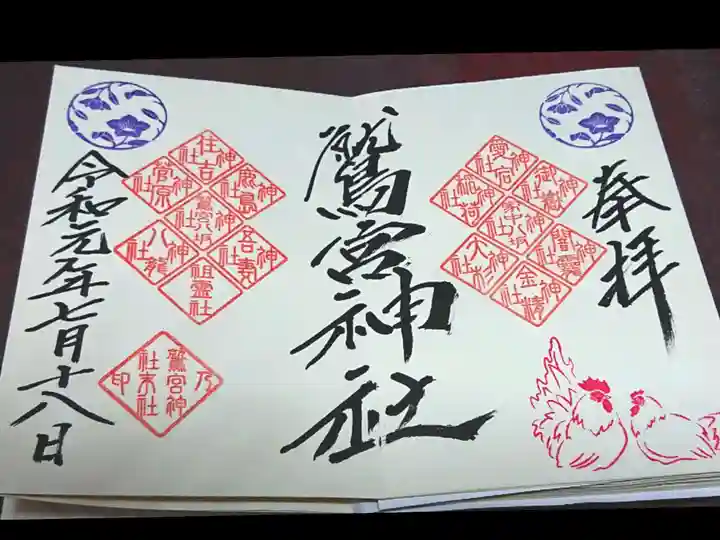 奉拝
鷲宮神社
令和元年七月十八日
愛宕神社
御嶽神社
稲荷神社
闇靇神社
大杉神社
金精神社
住吉神社
鹿島神社
菅原神社
八坂神社
吾妻神社
八龍神社
祖霊社
鷲宮神
社末社
乃印